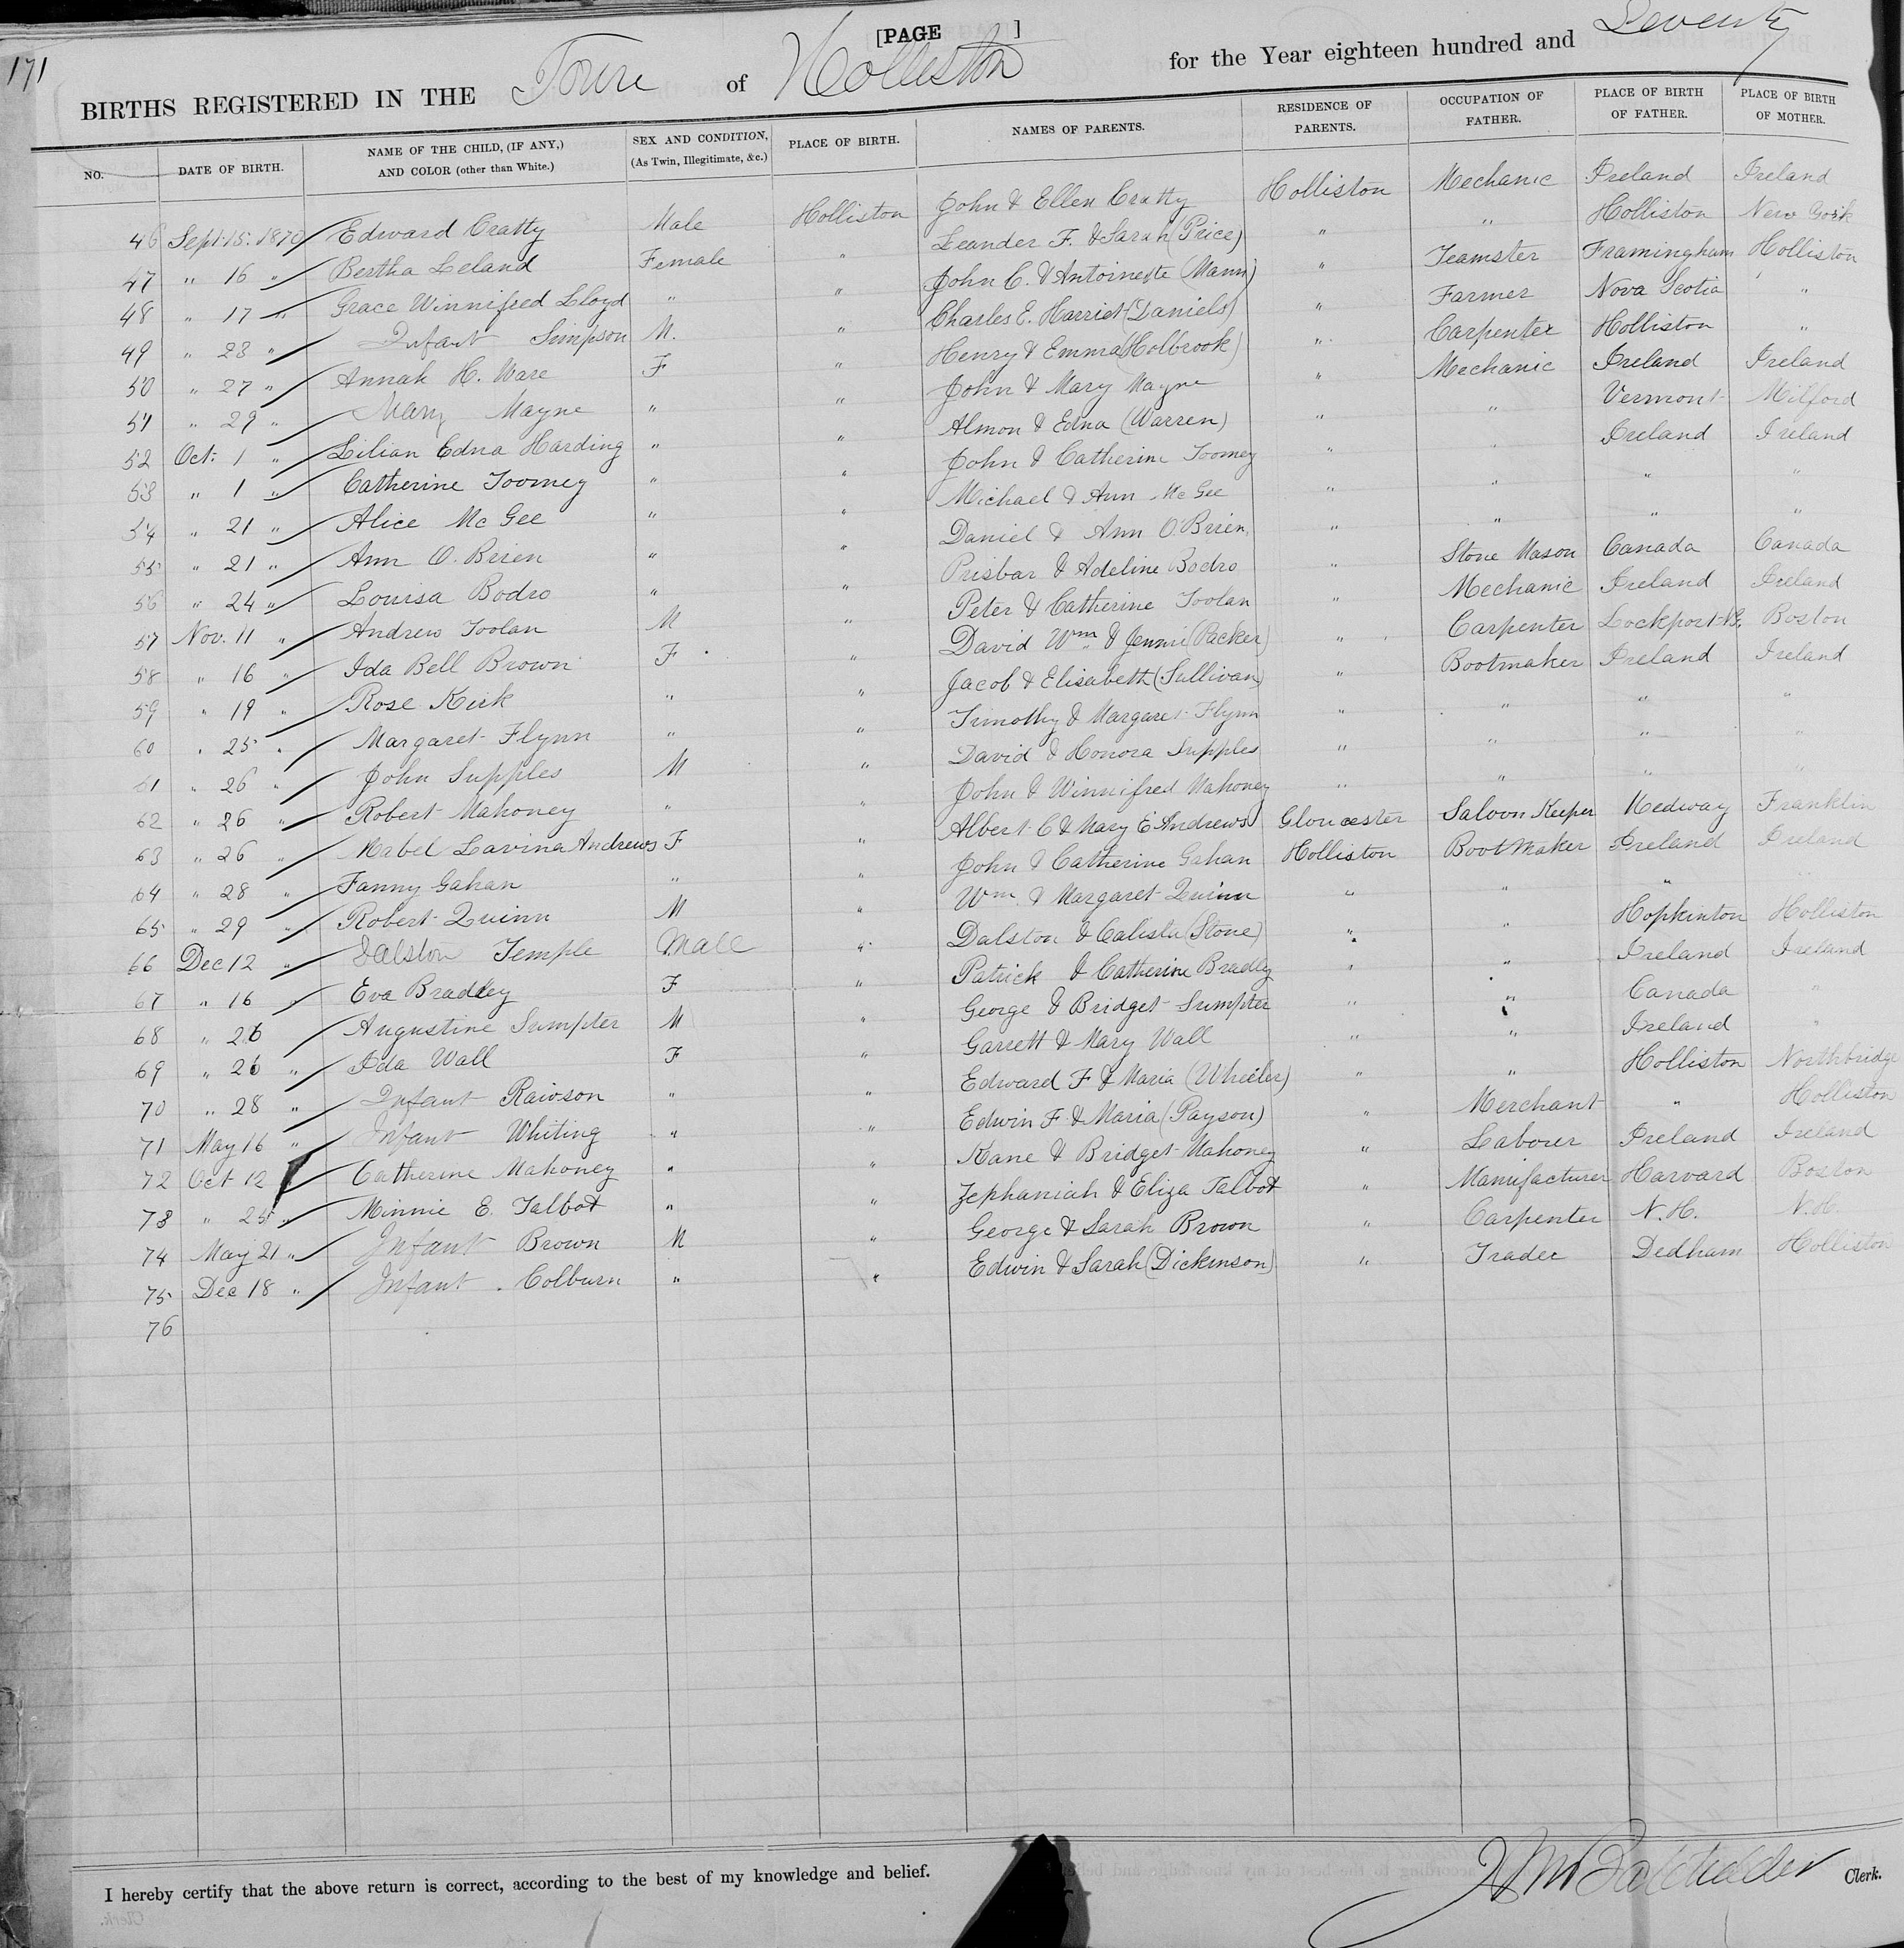 171
[PAGE ]
BIRTHS REGISTERED IN THE Town of Holliston for the Year eighteen hundred and Seventy
NO. DATE OF BIRTH. NAME OF THE CHILD, (IF ANY,) AND COLOR (other than White.) SEX AND CONDITION, (As Twin, Illegitimate, &c.) PLACE OF BIRTH. NAMES OF PARENTS. RESIDENCE OF PARENTS. OCCUPATION OF FATHER. PLACE OF BIRTH OF FATHER. PLACE OF BIRTH OF MOTHER.
46 Sept. 15. 1870 Edward Cratty Male Holliston John & Ellen Cratty Holliston Mechanic Ireland Ireland
47 " 16 " Bertha Leland Female " Leander F. & Sarah (Price) " " Holliston New York
48 " 17 " Grace Winnifred Lloyd " " John C. & Antoinette (Mann) " Teamster Framingham Holliston
49 " 23 " Infant Simpson M. " Charles E. Harriet (Daniels) " Farmer Nova Scotia "
50 " 27 " Annah H. Ware F " Henry & Emma (Holbrook) " Carpenter Holliston "
51 " 29 " Mary Mayne " " John & Mary Mayne " Mechanic Ireland Ireland
52 Oct. 1 " Lilian Edna Harding " " Almon & Edna (Warren) " " Vermont Milford
53 " 1 " Catherine Toomey " " John & Catherine Toomey " " Ireland Ireland
54 " 21 " Alice Mc Gee " " Michael & Ann Mc Gee " " " "
55 " 21 " Ann O. Brien " " Daniel & Ann O'Brien " " " "
56 " 24 " Louisa Bodro " " Prisbar & Adeline Bodro " Stone Mason Canada Canada
57 Nov. 11 " Andrew Toolan M " Peter & Catherine Toolan " Mechanic Ireland Ireland
58 " 16 " Ida Bell Brown F " David Wm. & Jennie (Packer) " Carpenter Lockport Boston
59 " 19 " Rose Kirk " " Jacob & Elisabeth (Sullivan) " Bootmaker Ireland Ireland
60 " 25 " Margaret Flynn " " Timothy & Margaret Flynn " " " "
61 " 26 " John Supples M " David & Honora Supples " " " "
62 " 26 " Robert Mahoney " " John & Winnifred Mahoney " " " "
63 " 26 " Mabel Lavina Andrews F " Albert C & Mary E Andrews Gloucester Saloon Keeper Medway Franklin
64 " 28 " Fanny Gahan " " John & Catherine Gahan Holliston Boot Maker Ireland Ireland
65 " 29 " Robert Quinn M " Wm. & Margaret Quinn " " " "
66 Dec 12 " Dalston Temple Male " Dalston & Calista (Stone) " " Hopkinton Holliston
67 " 16 " Eva Bradley F " Patrick & Catherine Bradley " " Ireland Ireland
68 " 26 Augustine Sumpter M " George & Bridget Sumpter " " Canada "
69 " 26 " Ida Wall F " Garrett & Mary Wall " " Ireland "
70 " 28 " Infant Rawson " " Edward F & Maria (Wheeler) " " Holliston Northbridge
71 May 16 " Infant Whiting " " Edwin F & Maria (Payson) " Merchant " Holliston
72 Oct 12 Catherine Mahoney " " Kane & Bridget Mahoney " Laborer Ireland Ireland
73 " 25 " Minnie E. Talbot " " Zephaniah & Eliza Talbot " Manufacturer Harvard Boston
74 May 21 " Infant Brown M " George & Sarah Brown " Carpenter N.H. N.H.
75 Dec 18 " Infant Colburn " " Edwin & Sarah (Dickinson) " Trader Dedham Holliston
76
I hereby certify that the above return is correct, according to the best of my knowledge and belief.
Batchelder Clerk.